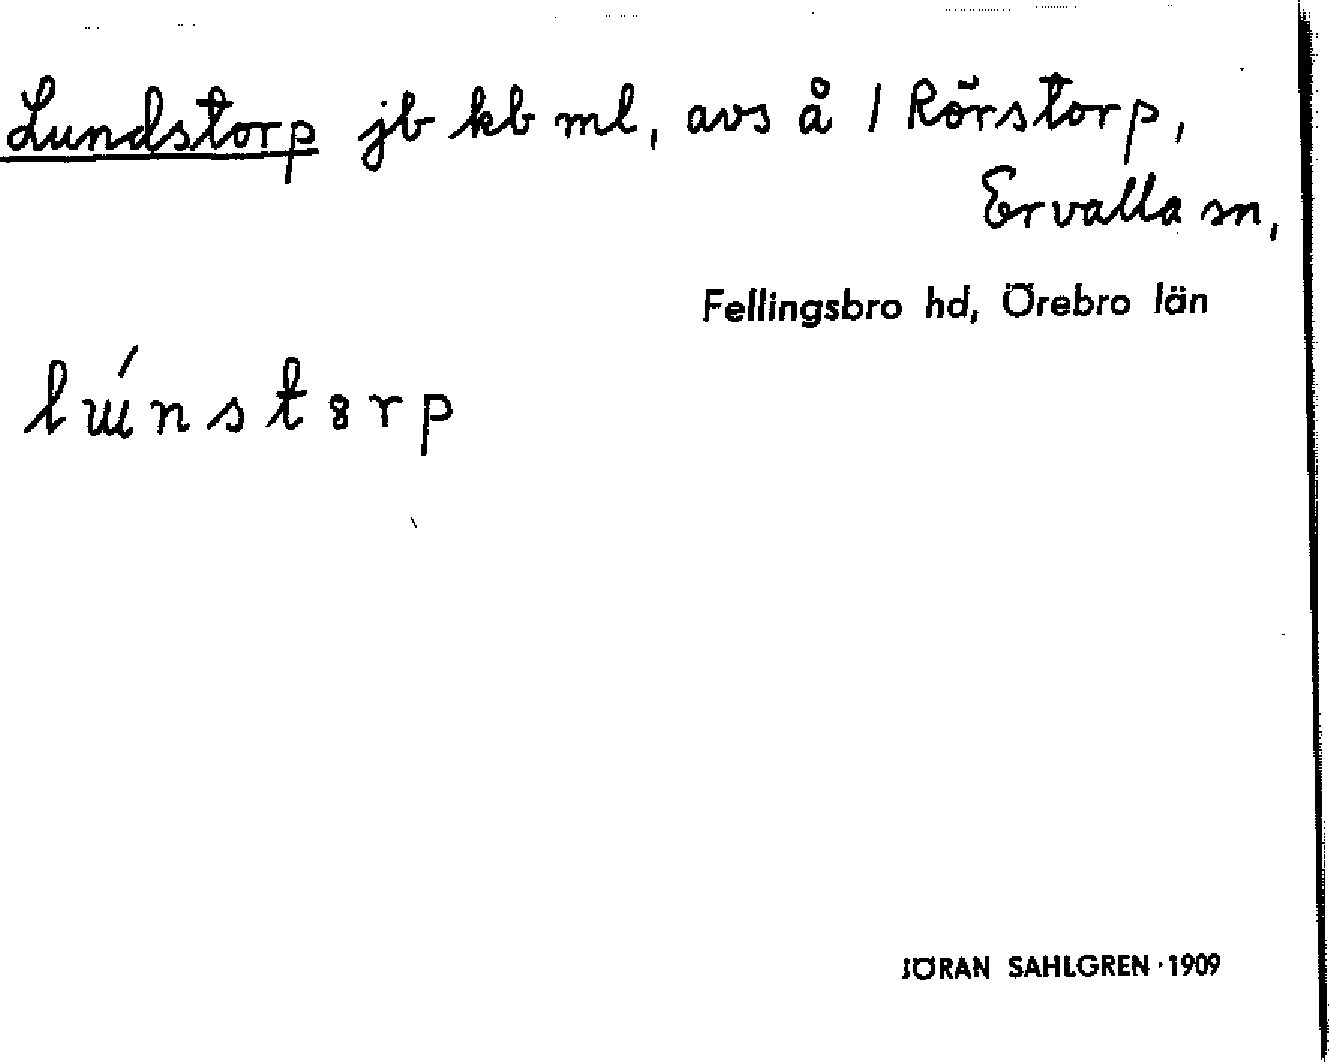 Lundstorp jb kb ml, avs å 1 Rörstorp,
Ervalla sn,
Fellingsbro hd, Örebro län
lɯ́nstȣrp
JÖRAN SAHLGREN · 1909